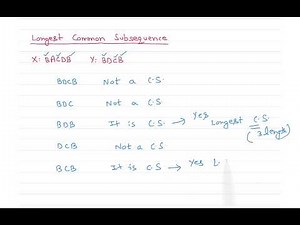 Longest Common Subsequence
X: BACDB Y: BDCB
BDCB Not a C.S.
BDC Not a C.S.
BDB It is C.S. → Yes Longest C.S. (3 length)
DCB Not a C.S
BCB It is C.S → Yes L.